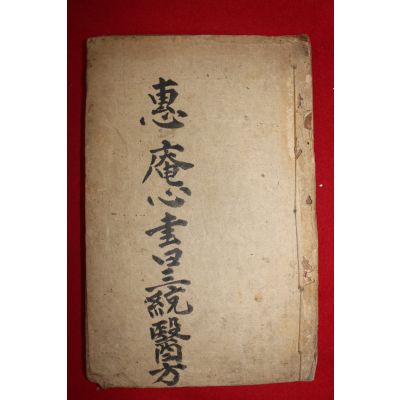 惠庵心書三統醫方